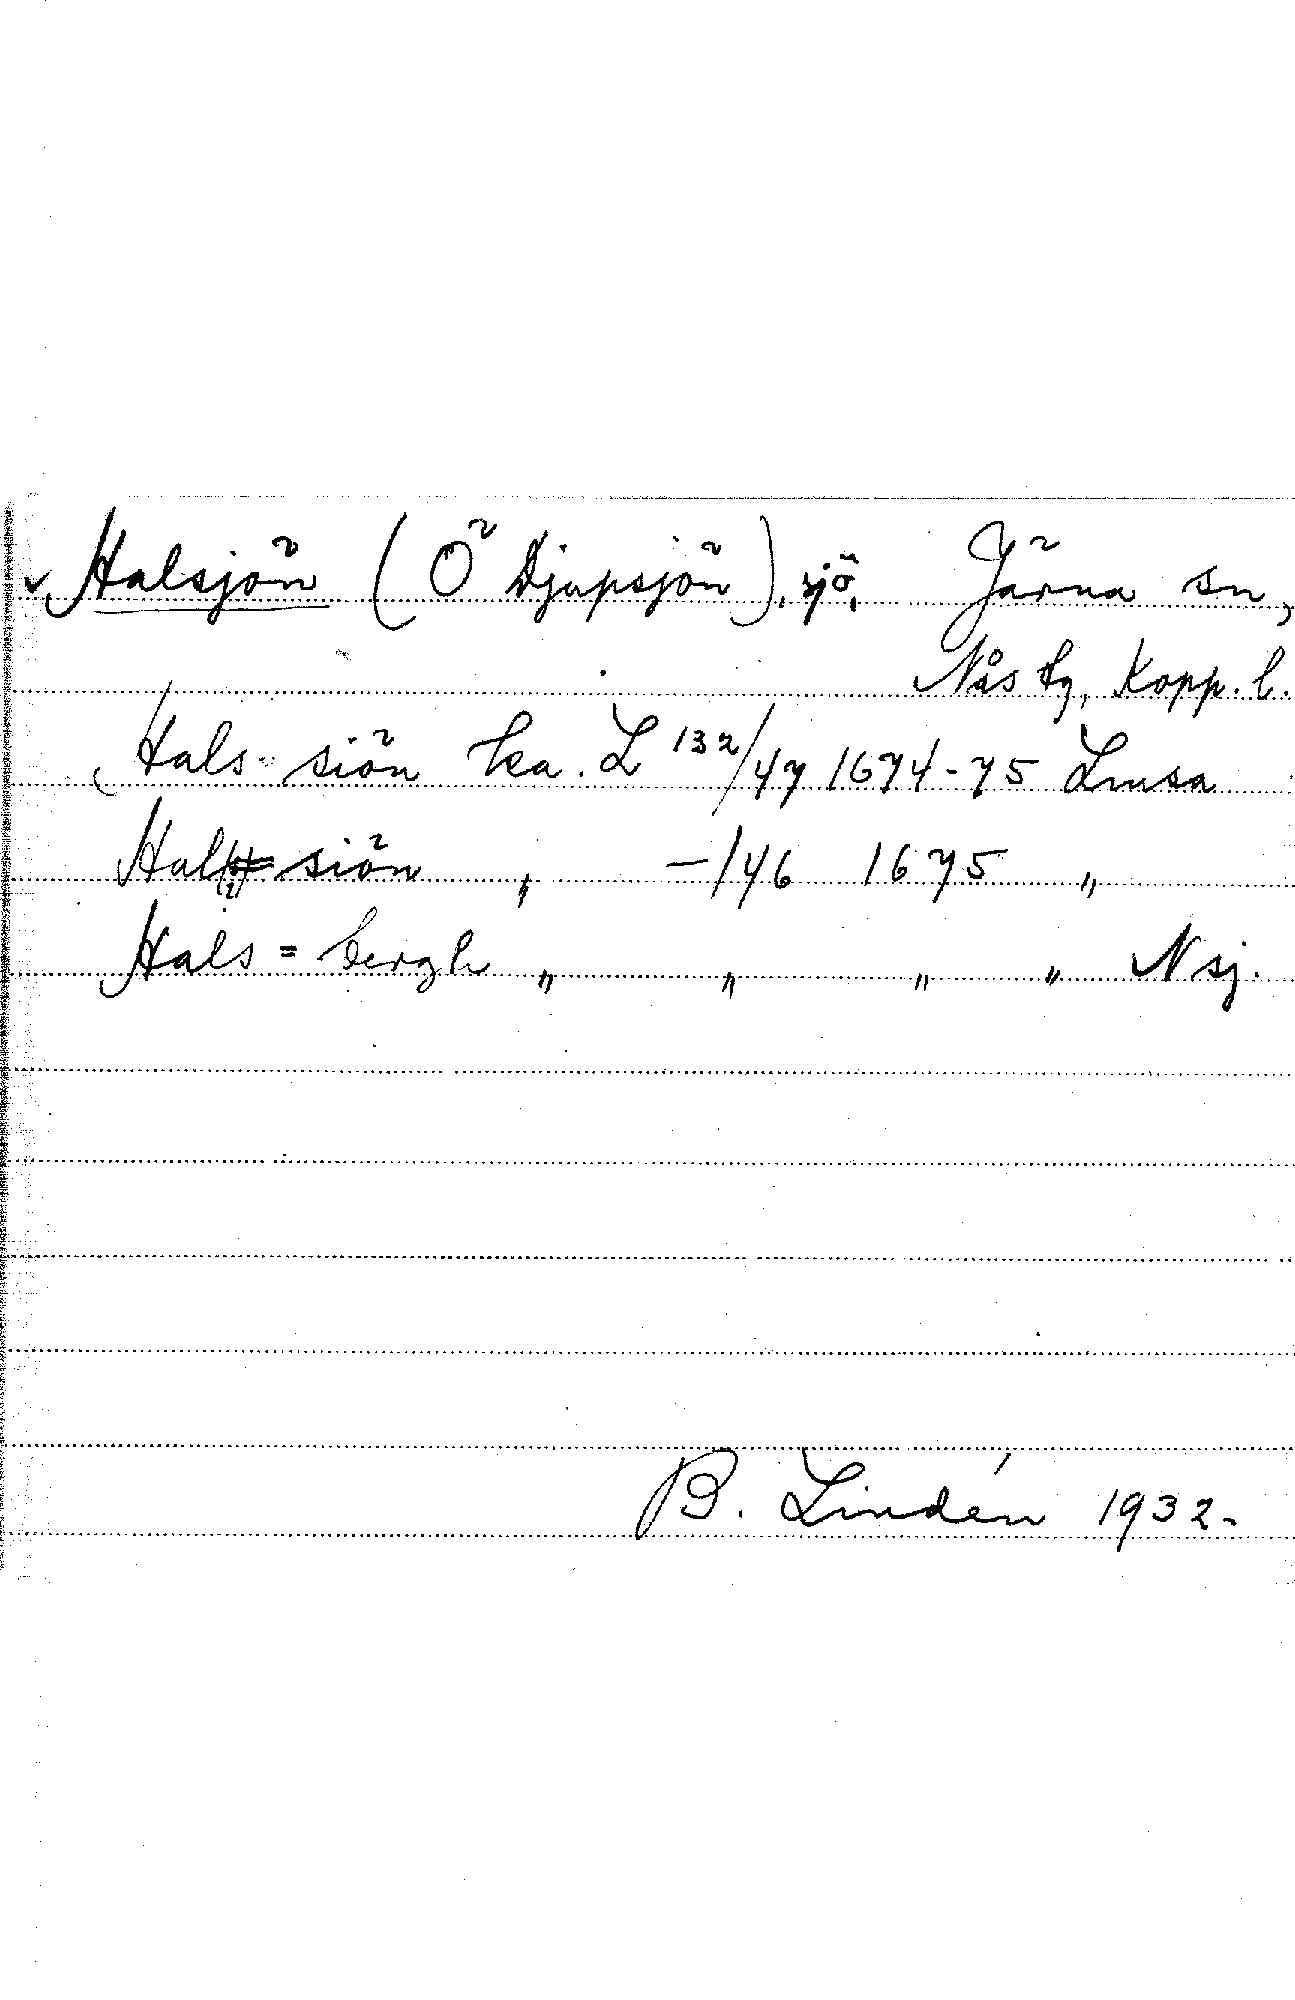 Halsjön (Ö Djupsjön), sjö, Järna sn,
Nås tg, Kopp. l.
Hals-siön ka. L 132/47 1674-75 Lmsa
Hal siön „ -/46 1675 „
Hals = bergh „ „ „ „ N sj.
B. Lindén 1932.